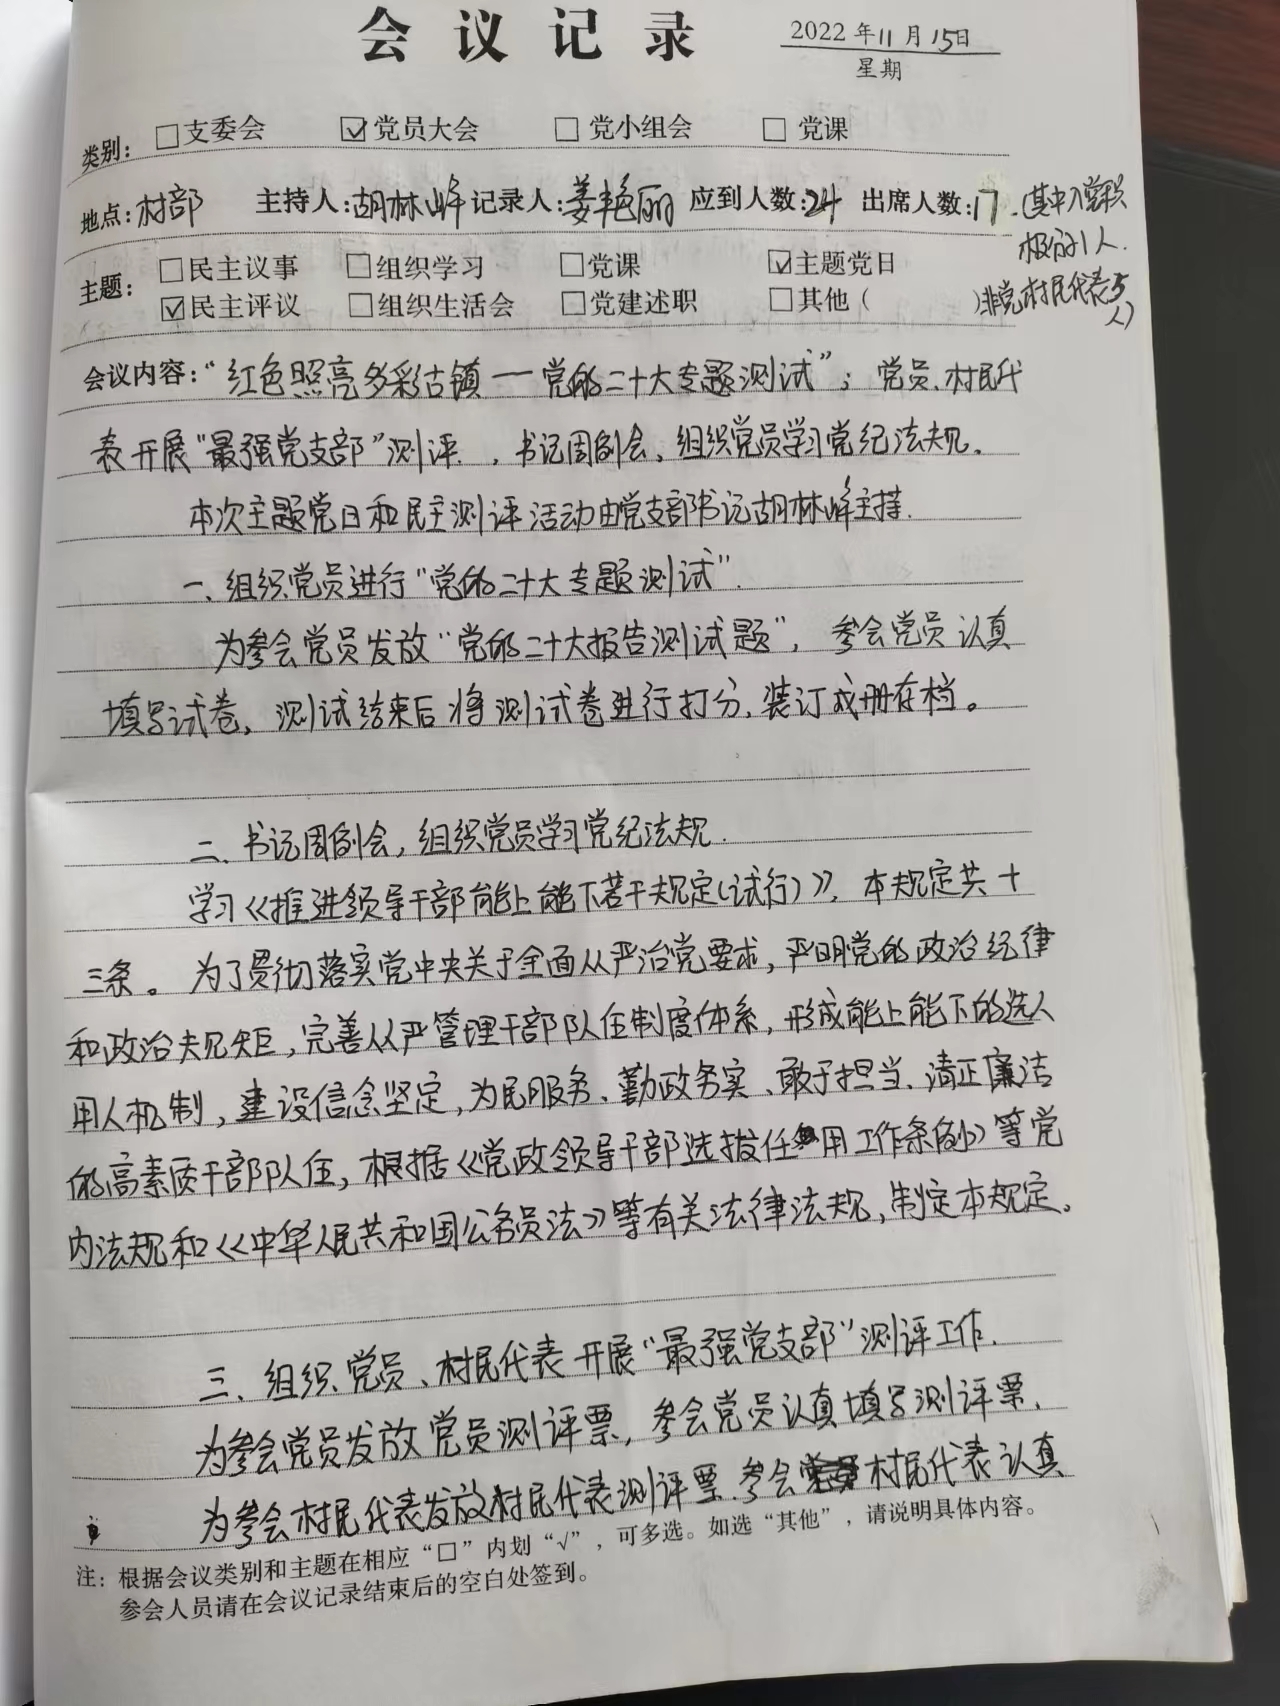 会议记录
2022年11月15日
星期
类别：□支委会 ☑党员大会 □党小组会 □党课
地点：村部 主持人：胡林峰 记录人：姜艳丽 应到人数：24 出席人数：17.（其中入党积
极分子1人.
非党村民代表5
人）
主题：□民主议事 □组织学习 □党课 ☑主题党日
☑民主评议 □组织生活会 □党建述职 □其他（ ）
会议内容：“红色照亮多彩古镇一党的二十大专题测试”；党员、村民代
表开展“最强党支部”测评.，书记周例会，组织党员学习党纪法规。
本次主题党日和民主测评活动由党支部书记胡林峰主持.
一、组织党员进行“党的二十大专题测试”.
为参会党员发放“党的二十大报告测试题”，参会党员认真
填写试卷，测试结束后将测试卷进行打分，装订成册存档。
二、书记周例会，组织党员学习党纪法规.
学习《推进领导干部能上能下若干规定（试行）》，本规定共十
三条。为了贯彻落实党中央关于全面从严治党要求，严明党的政治纪律
和政治规矩，完善从严管理干部队伍制度体系，形成能上能下的选人
用人机制，建设信念坚定，为民服务、勤政务实、敢于担当、清正廉洁
的高素质干部队伍，根据《党政领导干部选拔任用工作条例》等党
内法规和《中华人民共和国公务员法》等有关法律法规，制定本规定。
三、组织党员、村民代表开展“最强党支部”测评工作.
为参会党员发放党员测评票，参会党员认真填写测评票、
为参会村民代表发放村民代表测评票.参会村民代表认真
注：根据会议类别和主题在相应“□”内划“√”，可多选。如选“其他”，请说明具体内容。
参会人员请在会议记录结束后的空白处签到。